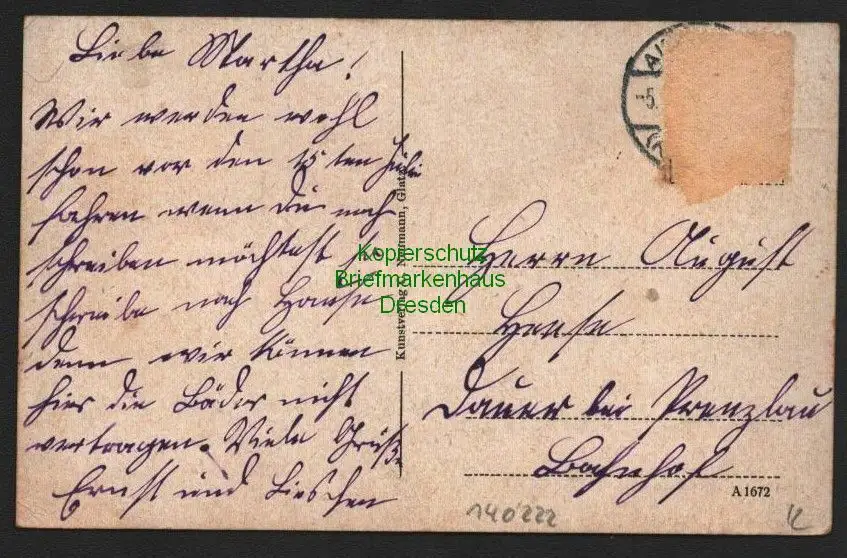 Liebe Martha!
Wir werden wohl
schon vor den 15ten Juli
fahren wenn Du noch
schreiben möchtest so
schreibe nach Hause
denn wir können
hier die Bäder nicht
vertragen. Viele Grüße
Ernst und Lieschen
Kunstverlag Neumann, Glatz
-5.
Kopierschutz
Briefmarkenhaus
Dresden
Herrn August
Hense
Dauer bei Prenzlau
Bahnhof
A 1672
140222